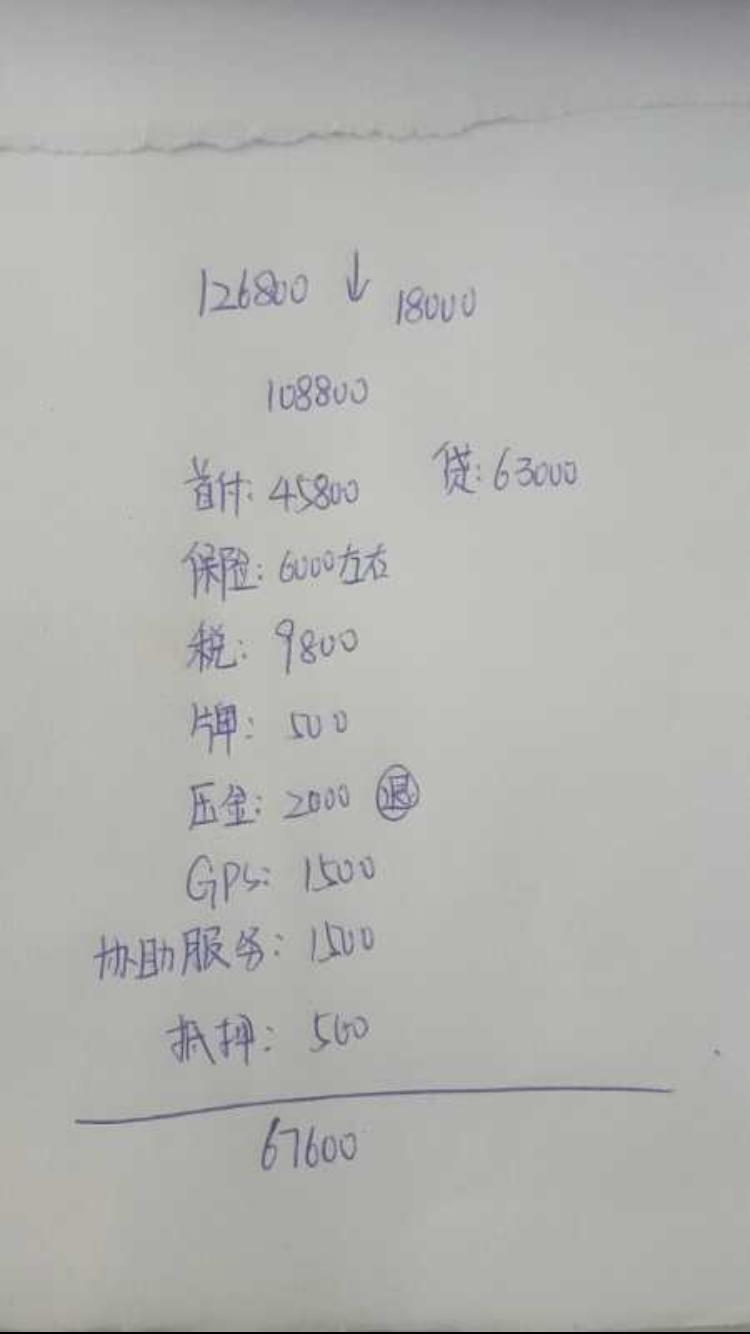 126800 ↓ 18000
108800
首付: 45800 贷: 63000
保险: 6000左右
税: 9800
牌: 500
压金: 2000 退
GPS: 1500
协助服务: 1500
抵押: 500
67600